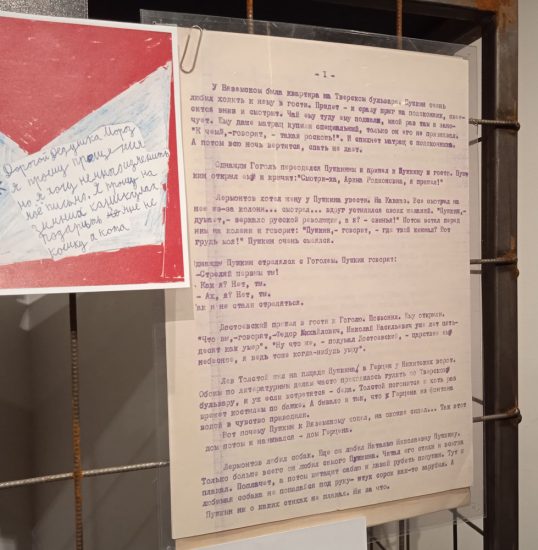 Дорогой дедушка Мороз
я прошу прощения
но я хочу немного изменить
моё письмо. Я прошу на
зимний
подарить мне не
кошку а кота
- 1 -
У Вяземского была квартира на Тверском бульваре. Пушкин очень
любил ходить к нему в гости. Придет - и сразу прыг на подоконник,
вниз и смотрит. Чай ему туду
Ему даже матрац купили специальный, только он его не признавал.
"К чему,-говорит, - такая роскошь!". И спихнет матрац с подоконника.
А потом всю ночь вертится, спать не дает.
Однажды Гоголь переоделся Пушкиным и пришел к Пушкину в гости.
открыл ему и кричит:"Смотри-ка, Арина Родионовна, я пришел!"
Лермонтов хотел жену у Пушкина увести. На Кавказ. Все смотрел на
нее из-за колонн... смотрел... вдруг устыдился своих желаний. "Пушкин,-
думает,- зеркало русской революции, а я? - свинья!" Потом встал перед
ним на колени и говорит: "Пушкин,- говорит, - где твой кинжал? Вот
грудь моя!" Пушкин очень смеялся.
Однажды Пушкин стрелялся с Гоголем. Пушкин говорит:
-Стреляй первым ты!
Как я? Нет, ты.
- Ах, я? Нет, ты.
ак и не стали стреляться.
Достоевский пришел в гости к Гоголю. Позвонил. Ему открыли.
"Что вы,-говорят,-Федор Михайлович, Николай Васильевич уже лет
десят как умер". "Ну что же, - подумал Достоевский, - царствие ему
небесное, я ведь тоже когда-нибудь умру".
Лев Толстой жил на площади Пушкина, а Герцен у Никитских ворот.
Обоим по литературным делам часто приходилось гулять по Тверскому
бульвару, и уж если встретятся - беда. Толстой погонится и хоть раз
врежет костылем по башке. А бывало и так, что
водой в чувство приводили.
Вот почему Пушкин к Вяземскому ходил, на окошке сидел... Так этот
дом потом и назывался - дом Герцена.
Лермонтов любил собак. Еще он любил Наталью Николаевну Пушкину.
Только больше всего он любил самого Пушкина. Читал его стихи и всегда
плакал. Поплачет, а потом вытащит саблю и давай рубить подушки. Тут и
любимая собака не попадайся под руку- штук сорок как-то зарубил. А
Пушкин ни о каких стихах не плакал. Ни за что.